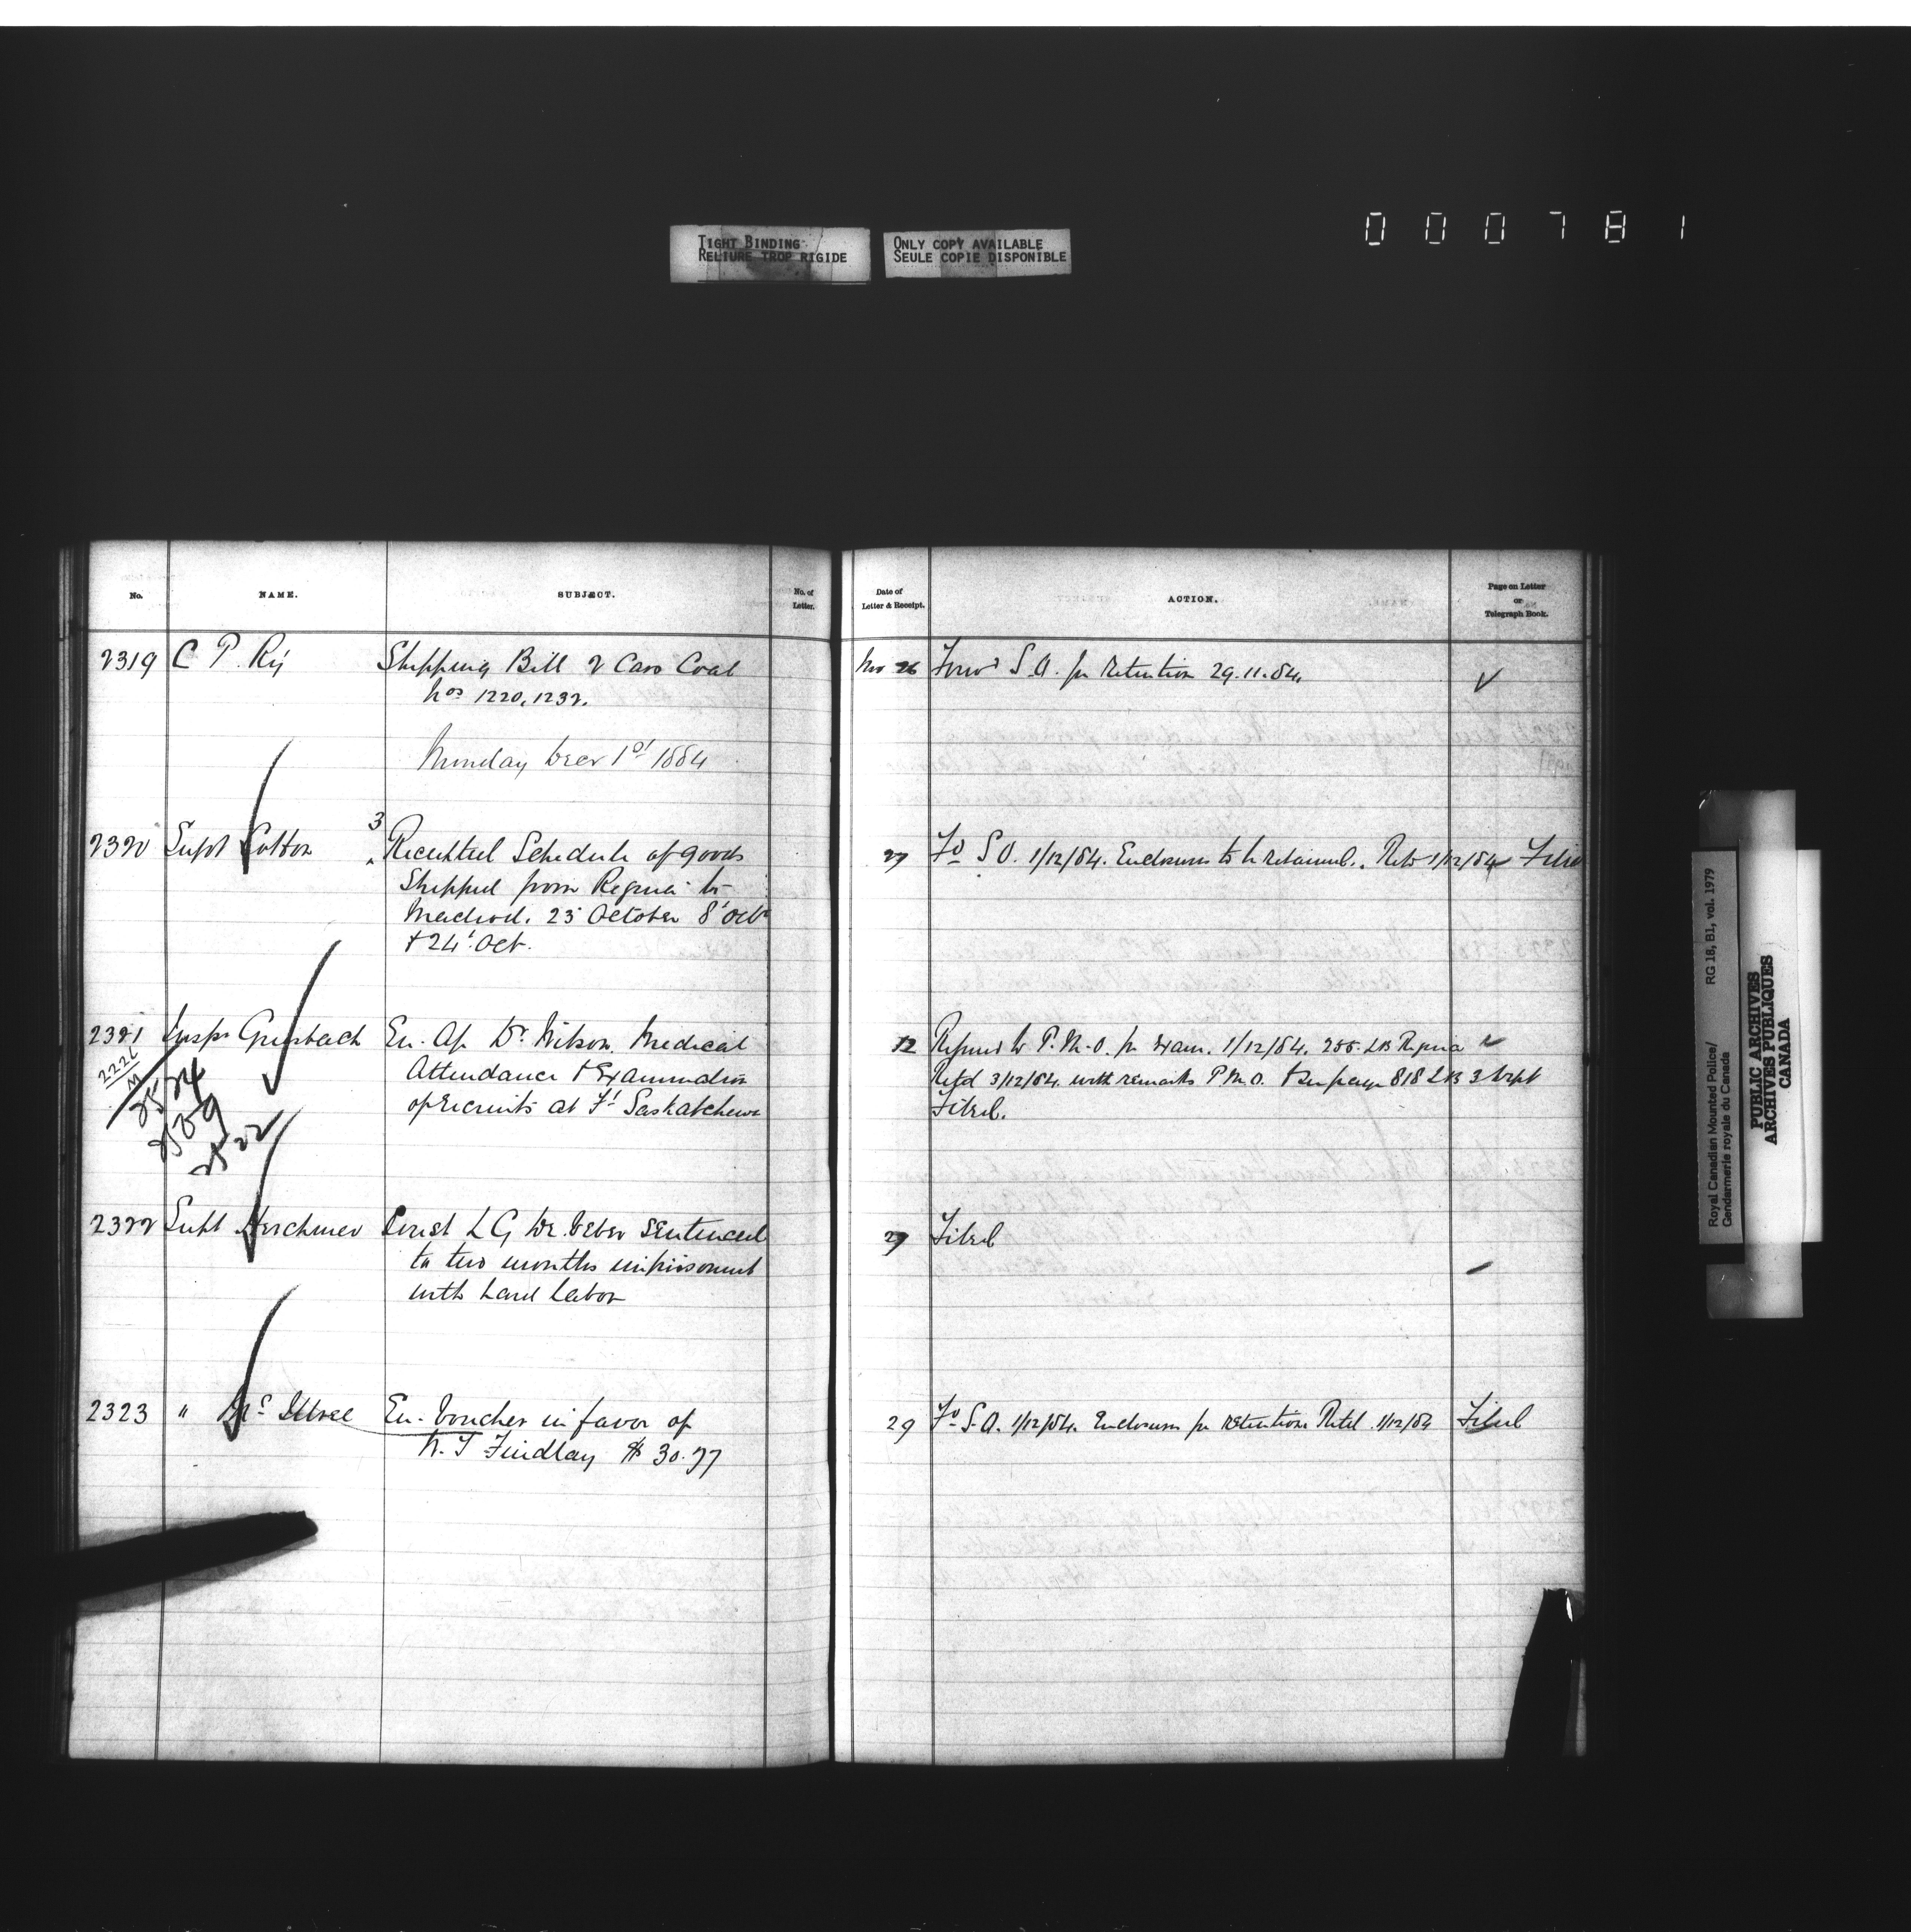 000781
TIGHT BINDING
RELIURE TROP RIGIDE
ONLY COPY AVAILABLE
SEULE COPIE DISPONIBLE
No. NAME. SUBJECT. No. of Letter. Date of Letter & Receipt. ACTION. Page on Letter or Telegraph Book.
2319 C P. Ry Shipping Bill 2 Cars Coal Nov 26 Forwd S.O. for retention 29.11.84. ✓
Nos 1220, 1232.
Monday Decr 1st 1884
2320 Supt Cotton 3 Receipted Schedule of goods 27 Fd S O. 1/12/84. Enclosures to be retained. Retd 1/12/84 Filed
Shipped from Regina to
Macleod. 25 October 8' Oct
+ 24' Oct.
2321 Inspr Griesbach En. Ap Dr. Wilson. Medical 12 Referred to P.M.O. for Exam. 1/12/84. 255. LB Regina ✓
2226
Attendance + Examination Retd 3/12/84. with remarks P M O. + Sen page 818 LB 3 Dept
of recruits at Ft Saskatchewan Filed.
2534
2509
2522
2322 Supt Herchmer Const L G De Veber sentenced 27 Filed
to two months imprisonment
with hard labor
2323 " Mc Illree En. Voucher in favor of 29 Fd S.O. 1/12/84. Enclosures for retention Retd 1/12/84 Filed
N. T Findlay $ 30.77
Royal Canadian Mounted Police/ RG 18, B1, vol. 1979
Gendarmerie royale du Canada
PUBLIC ARCHIVES
ARCHIVES PUBLIQUES
CANADA